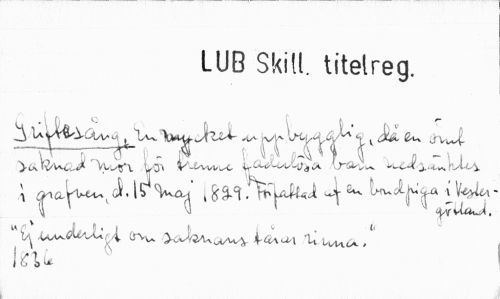 LUB Skill. titelreg.
Griftesång, En mycket uppbygglig, då en ömt
saknad mor för trenne faderlösa barn nedsänktes
i grafven, d. 15 maj 1829. Författad af en bondpiga i Vester-
götland.
"Ej underligt om saknans tårar rinna."
1836